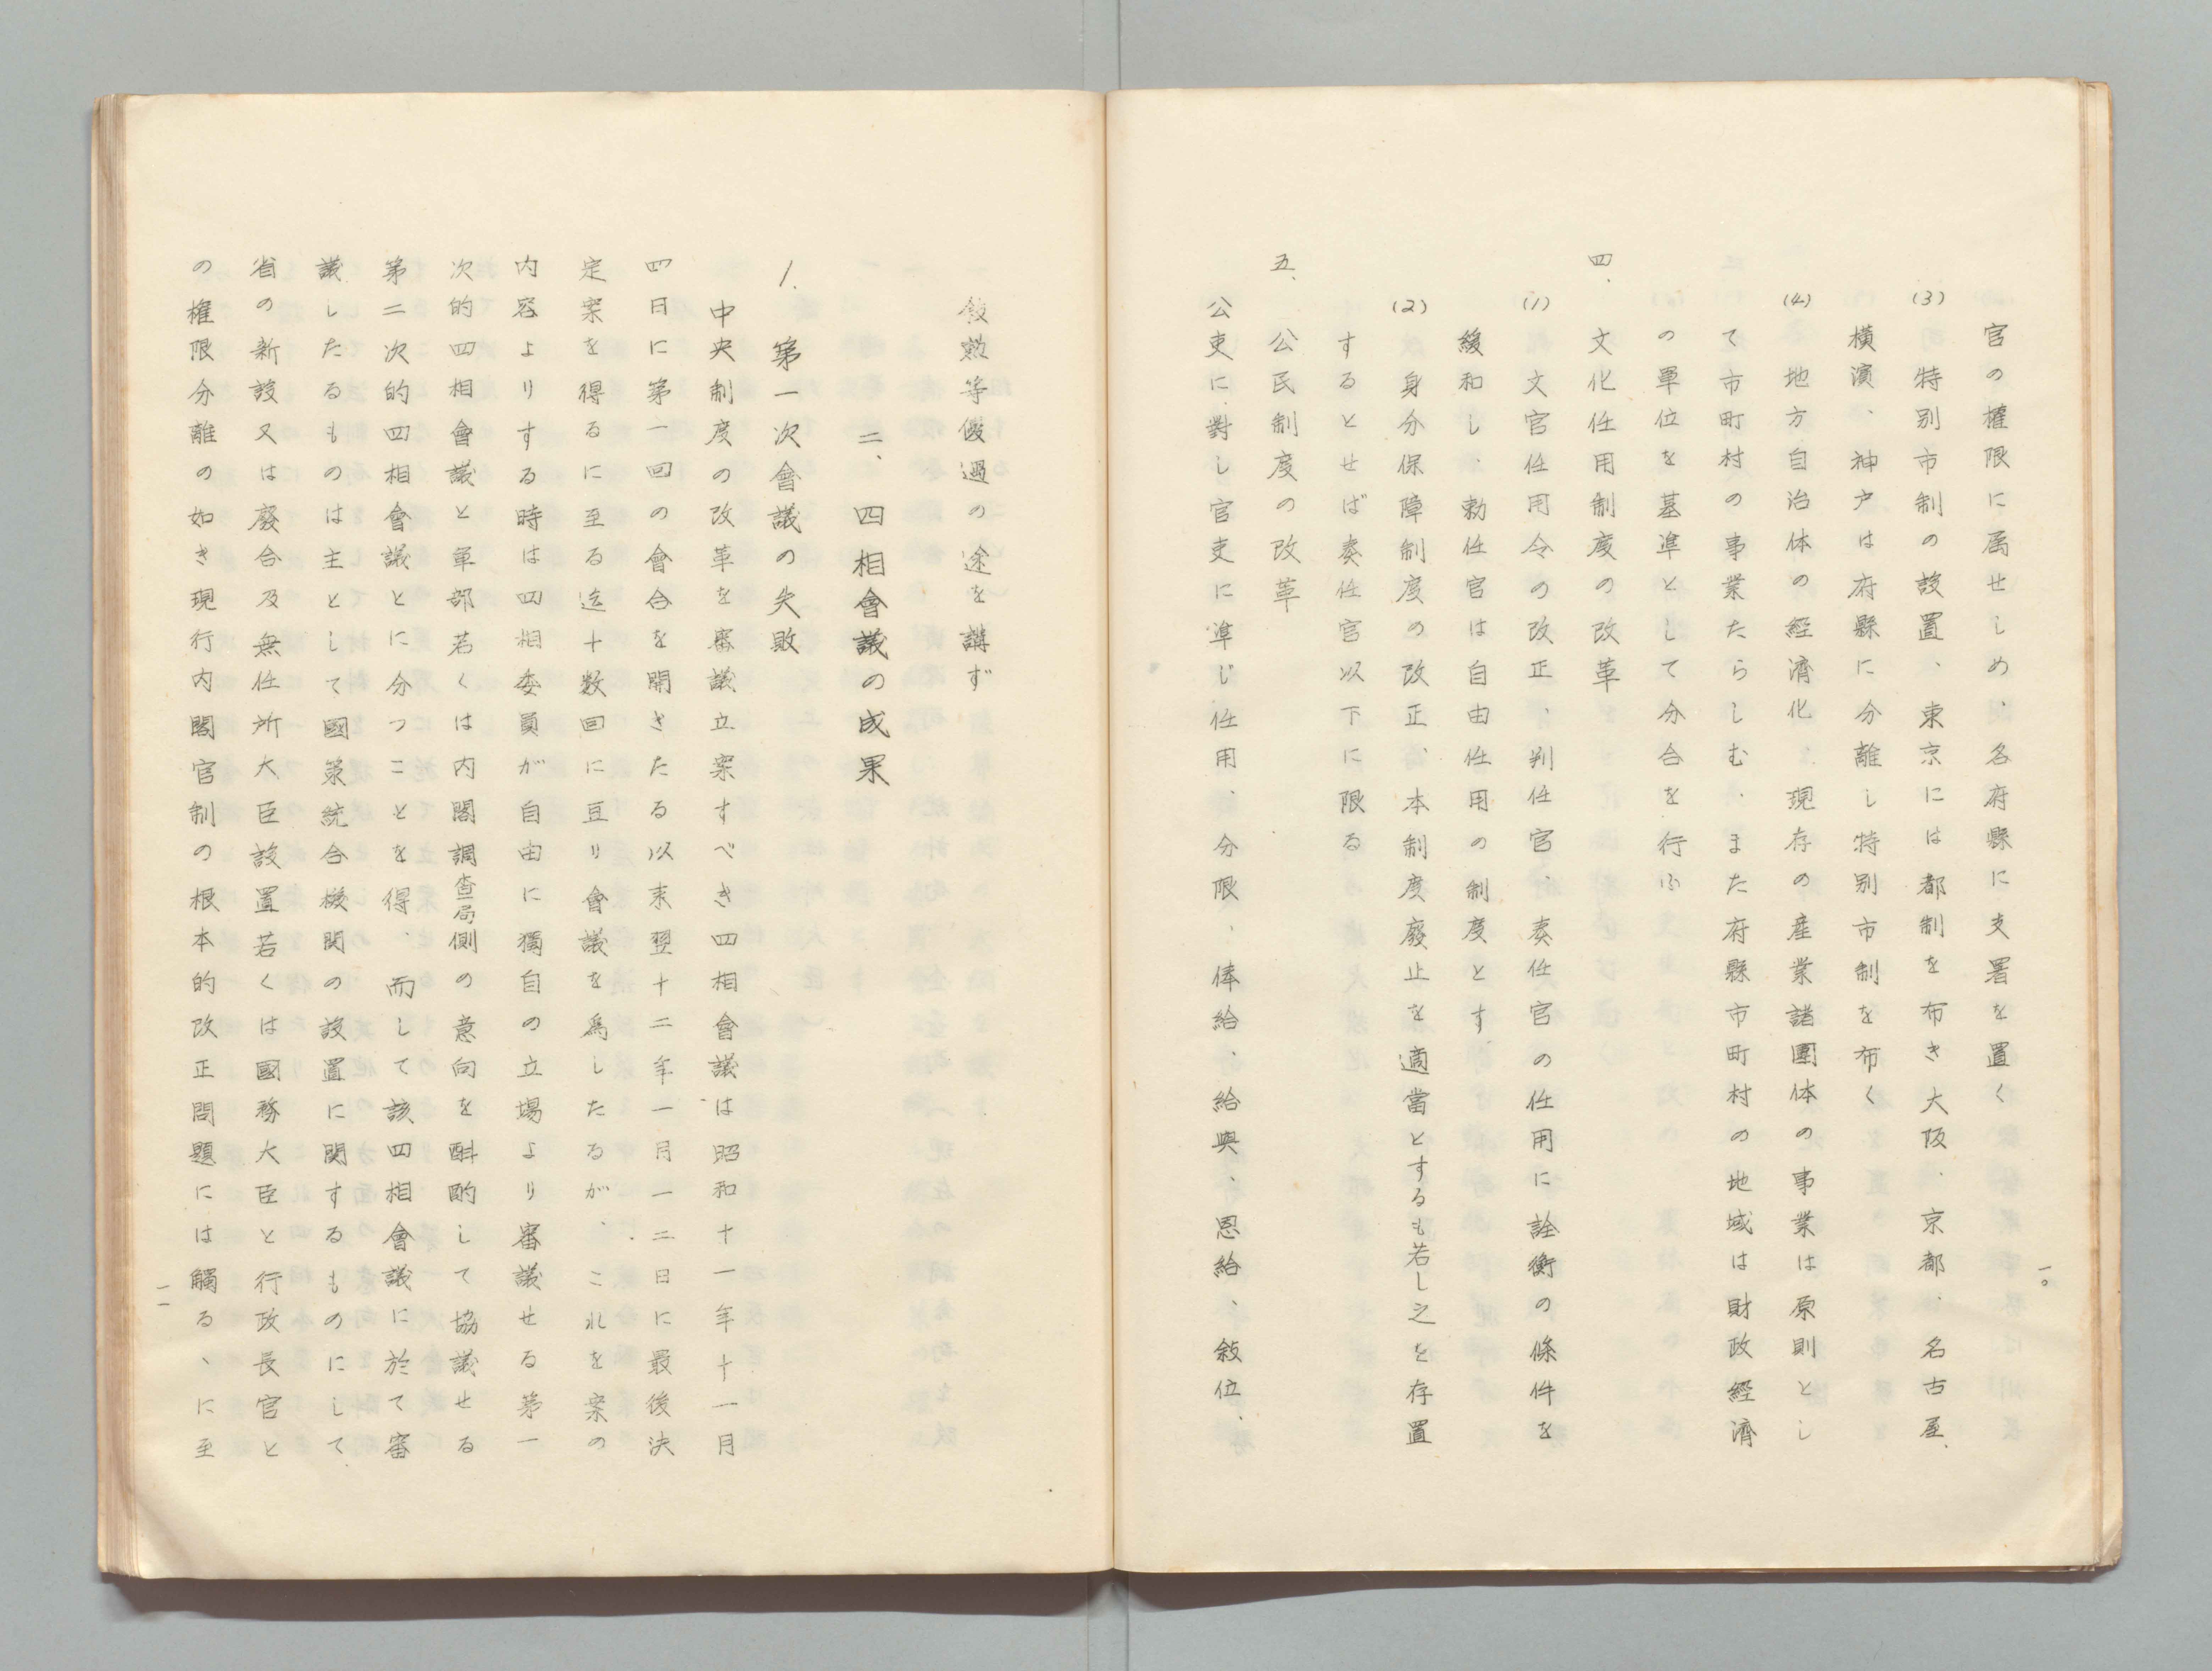 官の権限に属せしめ、各府縣に支署を置く
(3) 特別市制の設置、東京には都制を布き大阪、京都、名古屋、
横濱、神戸は府縣に分離し特別市制を布く
(4) 地方自治体の経濟化、現存の産業諸團体の事業は原則とし
て市町村の事業たらしむ、また府縣市町村の地域は財政経濟
の單位を基準として分合を行ふ
四、文化任用制度の改革
(1) 文官任用令の改正、判任官、奏任官の任用に詮衡の條件を
緩和し、勅任官は自由任用の制度とす
(2) 身分保障制度の改正、本制度廢止を適當とするも若し之を存置
するとせば奏任官以下に限る
五、公民制度の改革
公吏に對し官吏に準じ任用、分限、俸給、給與、恩給、敍位、
一〇
敍勲等優遇の途を講ず
二、四相會議の成果
1. 第一次會議の失敗
中央制度の改革を審議立案すべき四相會議は昭和十一年十一月
四日に第一回の會合を開きたる以来翌十二年一月一二日に最後決
定案を得るに至る迄十数回に亘り會議を為したるが、これを案の
内容よりする時は四相委員が自由に獨自の立場より審議せる第一
次的四相會議と軍部若くは内閣調査局側の意向を斟酌して協議せる
第二次的四相會議とに分つことを得、而して該四相會議に於て審
議したるものは主として國策統合機関の設置に関するものにして
省の新設又は廢合及無任所大臣設置若くは國務大臣と行政長官と
の権限分離の如き現行内閣官制の根本的改正問題には觸るゝに至
一一